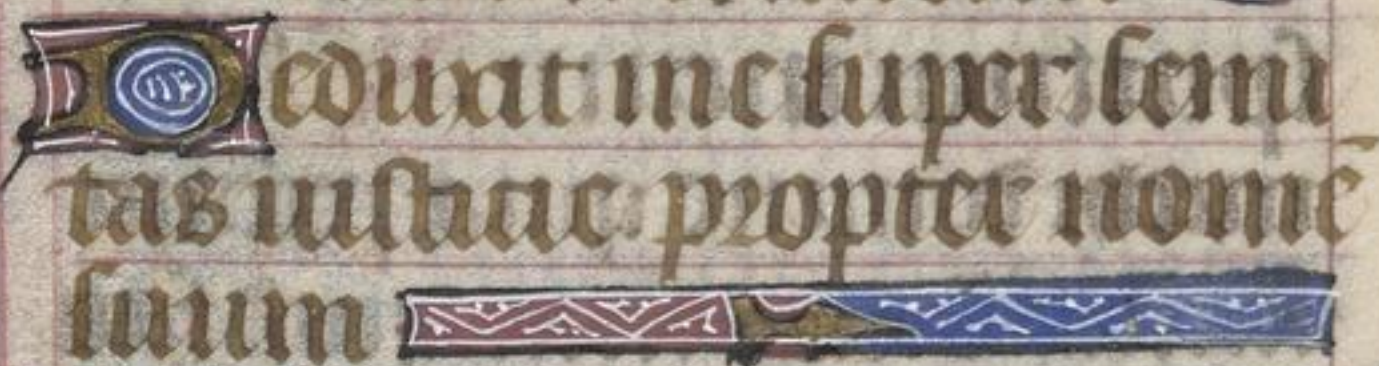 Deduxit me super semi
tas iusticie propter nomē
suum